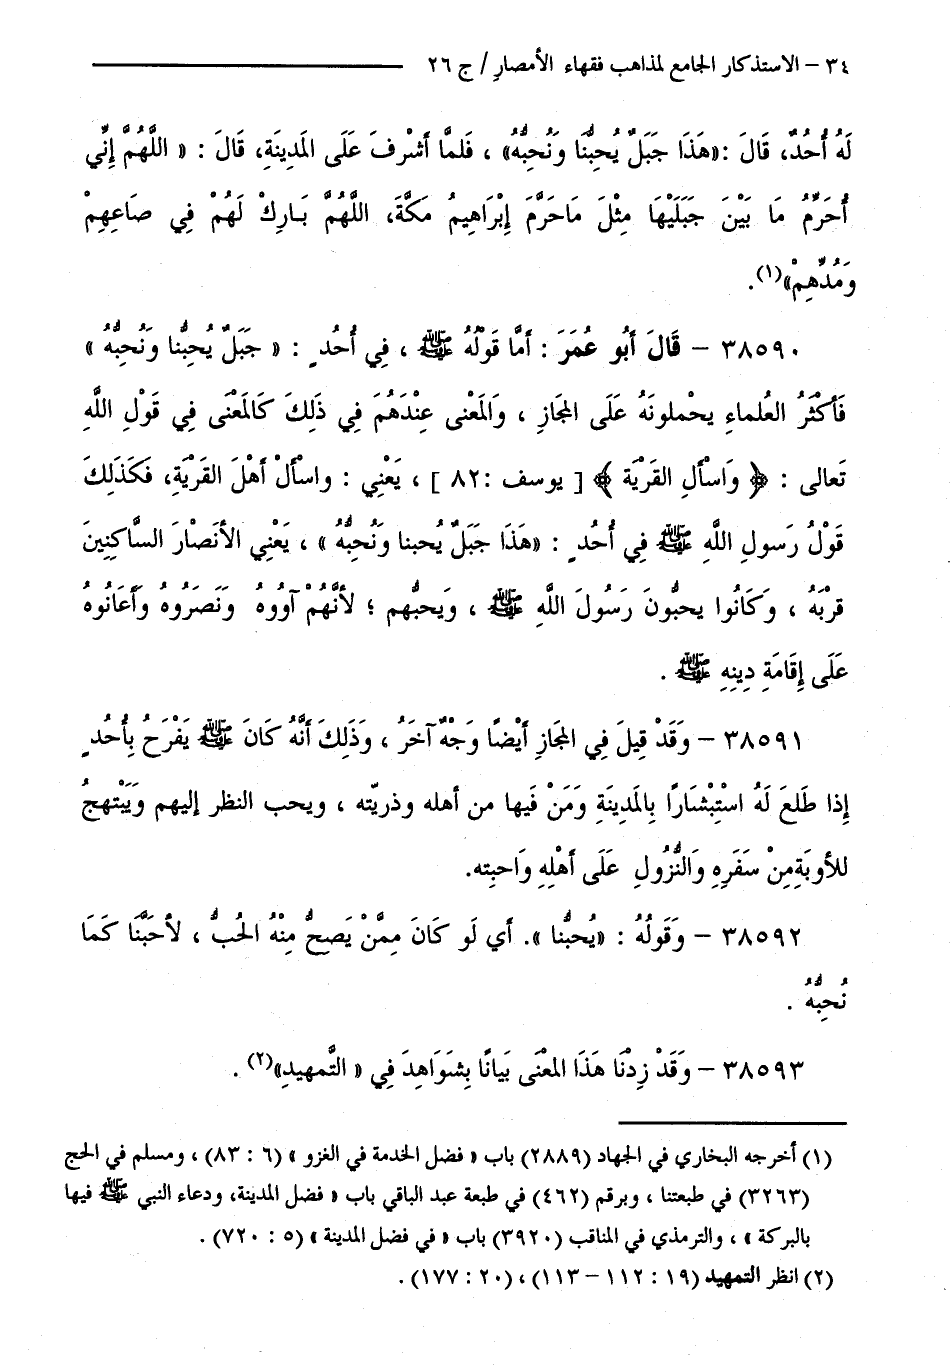 ٣٤ – الاستذكار الجامع لمذاهب فقهاء الأمصار / ج ٢٦
لَهُ أُحُدٌ، قَالَ :«هَذَا جَبَلٌ يُحِبُّنَا وَنُحِبُّهُ» ، فَلمَّا أَشْرفَ عَلَى المَدِينَةِ، قَالَ : « اللَّهُمَّ إِنِّي
أُحَرِّمُ مَا بَيْنَ جَبَلَيْهَا مِثْلَ مَاحَرَّمَ إِبْرَاهِيمُ مَكَّةَ، اللَّهُمَّ بَارِكْ لَهُمْ فِي صَاعِهِمْ
وَمُدِّهِمْ»(١).
٣٨٥٩٠ – قَالَ أَبُو عُمَرَ : أَمَّا قَوْلُهُ ﷺ ، فِي أُحُدٍ : « جَبَلٌ يُحِبُّنا وَنُحِبُّهُ »
فَأكْثَرُ العُلماءِ يحْملونَهُ عَلَى المجَازِ ، وَالمَعْنى عِنْدَهُمَ فِي ذَلِكَ كَالمَعْنَى فِي قَوْلِ اللَّهِ
تَعالى : ﴿ وَاسْأَلِ القَرْيَة ﴾ [ يوسف :٨٢ ] ، يَعْنِي : واسْأَلْ أَهْلَ القَرْيَةِ، فَكَذَلِكَ
قَوْلُ رَسولِ اللَّهِ ﷺ فِي أُحُدٍ : «هَذَا جَبَلٌ يُحبنا ونُحبُّهُ » ، يَعْنِي الأنْصَارَ السَّاكِنِينَ
قرْبَهُ ، وَكَانُوا يحبُّونَ رَسُولَ اللَّهِ ﷺ ، وَيحبُّهم ؛ لأنَّهُمْ آوُوهُ وَنَصَرُوهُ وأَعَانُوهُ
عَلَى إِقَامَةِ دِينِهِ ﷺ .
٣٨٥٩١ – وَقَدْ قِيلَ فِي المجَازِ أَيْضًا وَجْهٌ آخَرُ ، وَذَلِكَ أَنَّهُ كَانَ ﷺ يَفْرَحُ بِأُحُدٍ
إِذا طَلعَ لَهُ اسْتِبْشَارًا بِالمَدِينَةِ وَمَنْ فَيها من أهله وذريّته ، ويحب النظر إليهم وَيَبْتهجُ
للأوبَةِمِنْ سَفَرِهِ وَالنُّزُولِ عَلَى أَهْلِهِ وَاحبته.
٣٨٥٩٢ – وَقَولُهُ : «يُحبُّنا ». أي لَو كَانَ مِمَّنْ يَصحُّ مِنْهُ الحُبُّ ، لأحَبَّنَا كَمَا
نُحِبُّهُ .
٣٨٥٩٣ – وَقَدْ زِدْنَا هَذَا المعْنَى بَيانًا بِشوَاهِدَ فِي « التَّمهيدِ»(٢) .
(١) أخرجه البخاري في الجهاد (٢٨٨٩) باب « فضل الخدمة في الغزو » (٦ : ٨٣) ، ومسلم في الحج
(٣٢٦٣) في طبعتنا ، وبرقم (٤٦٢) في طبعة عبد الباقي باب « فضل المدينة، ودعاء النبي ﷺ فيها
بالبركة » ، والترمذي في المناقب (٣٩٢٠) باب « في فضل المدينة » (٥ : ٧٢٠) .
(٢) انظر التمهيد (١٩ : ١١٢ – ١١٣) ، (٢٠ : ١٧٧) .